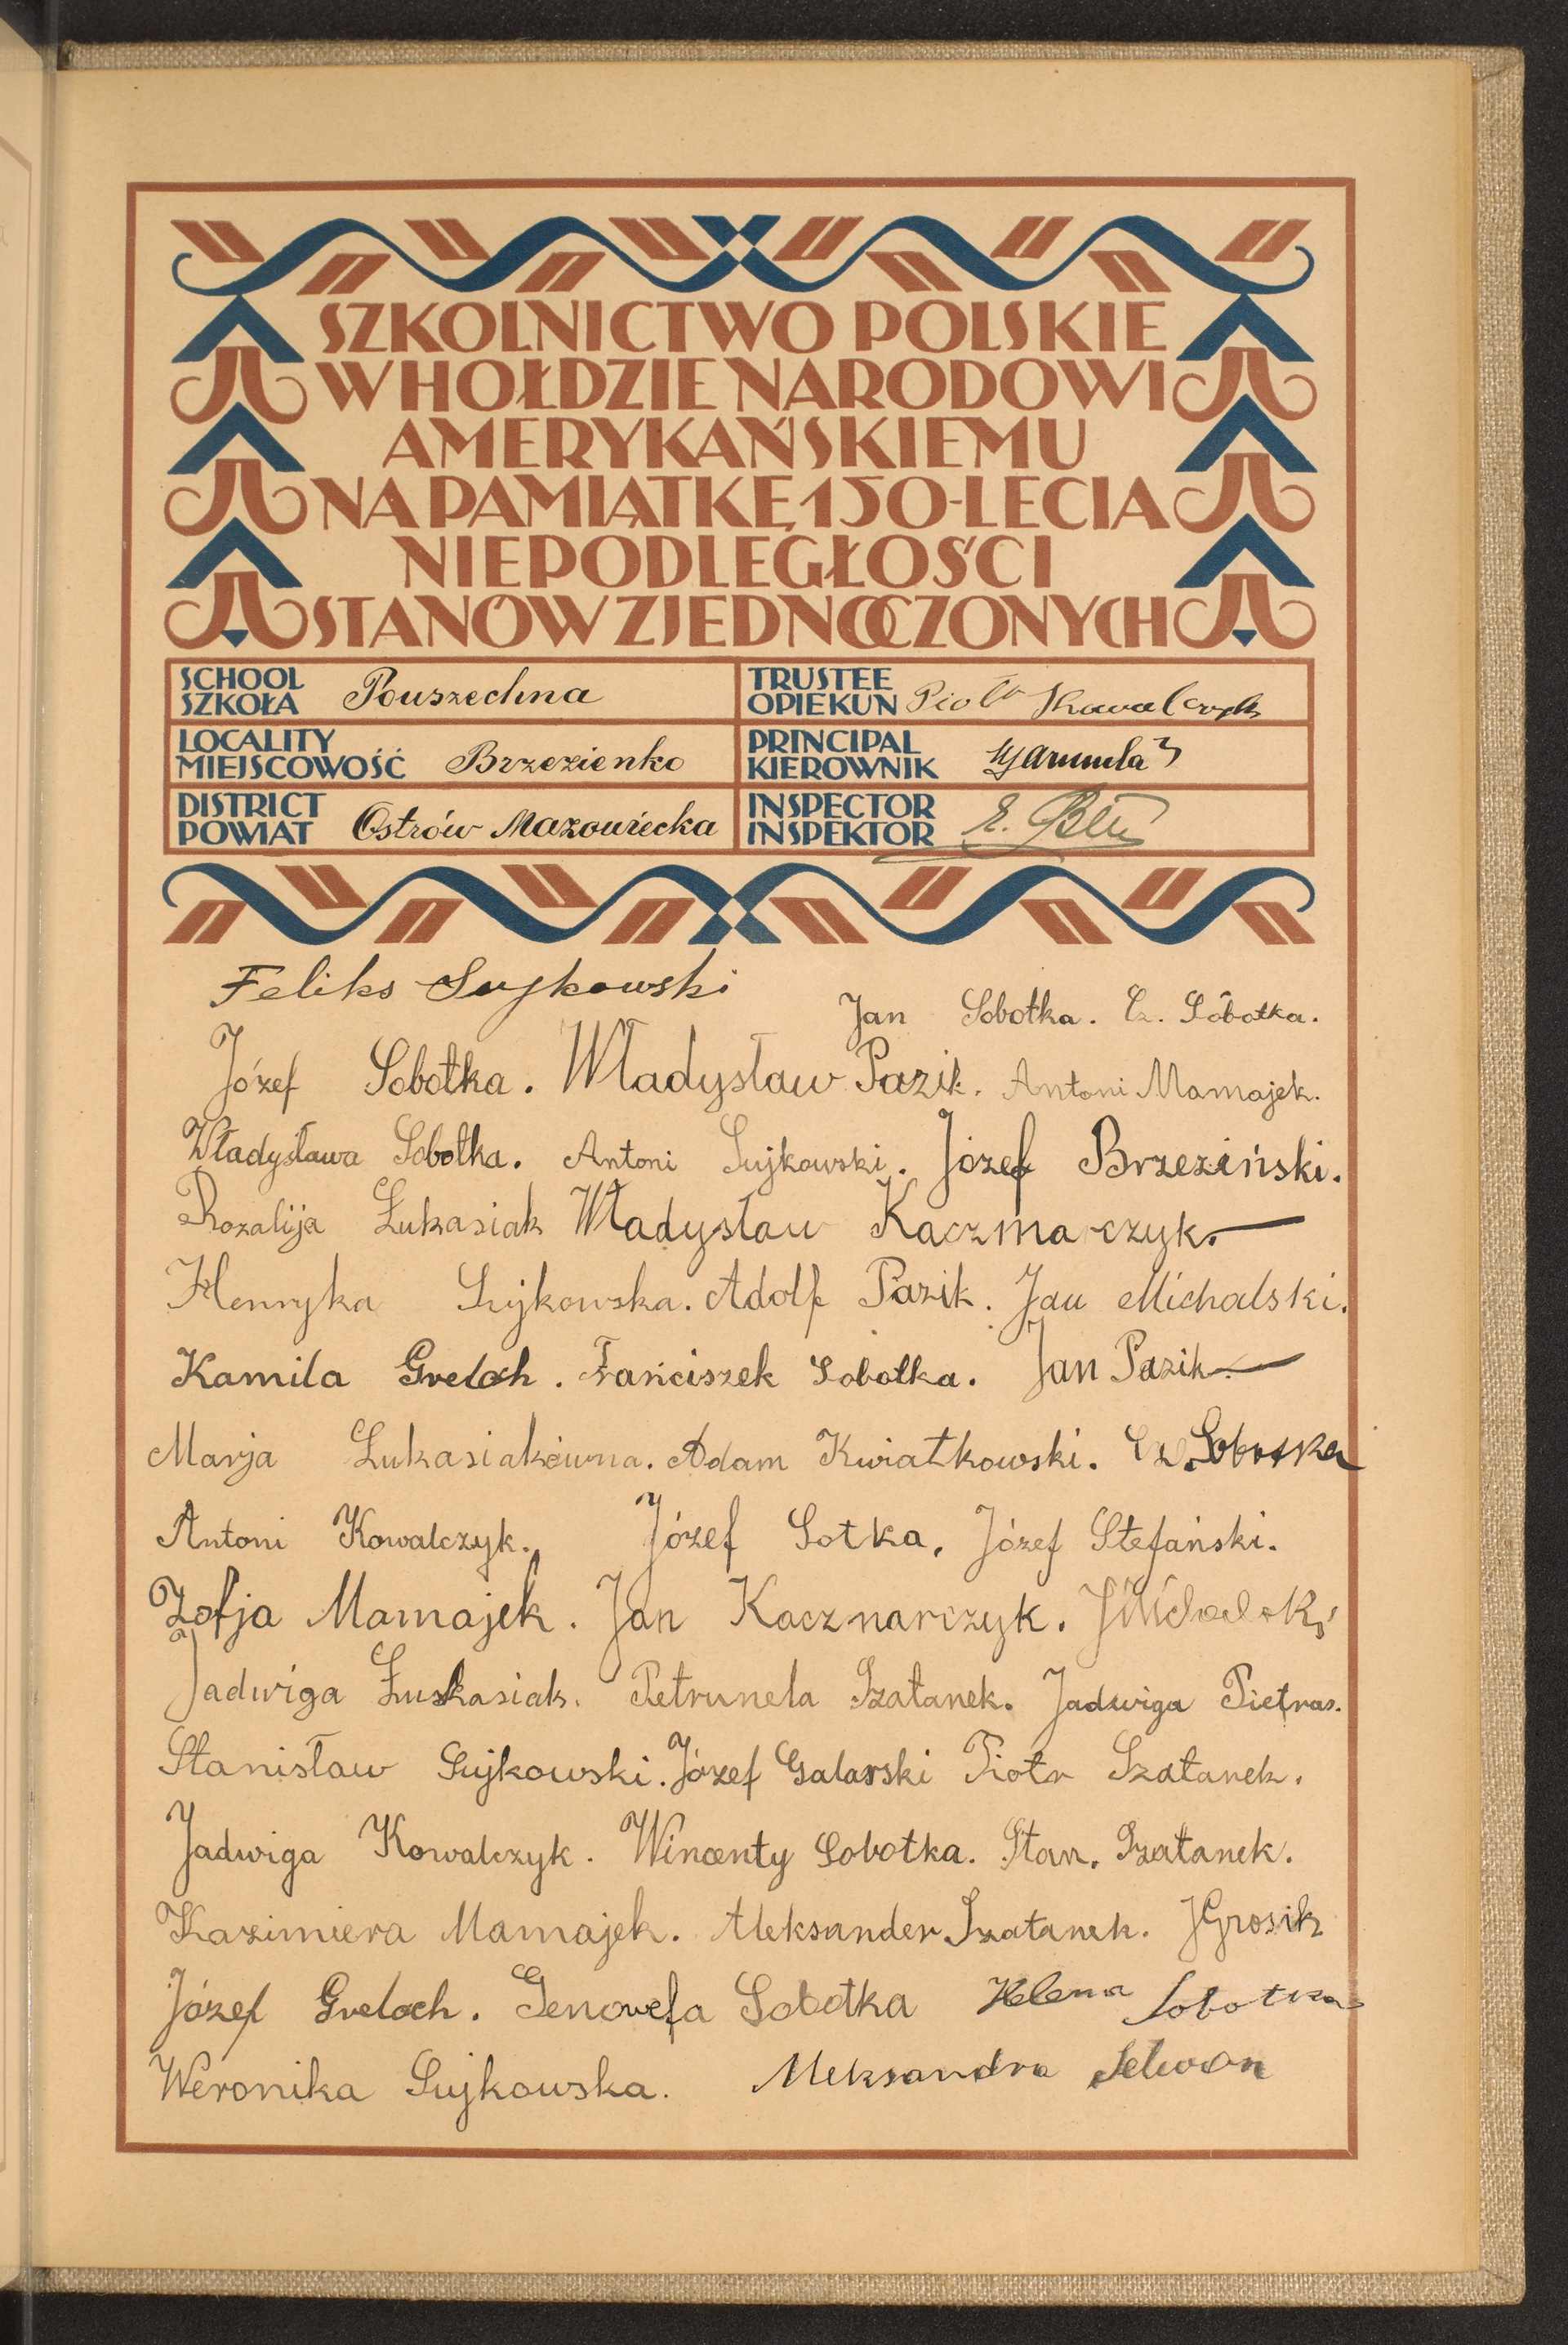 SZKOLNICTWO POLSKIE
W HOŁDZIE NARODOWI
AMERYKAŃSKIEMU
NA PAMIĄTKĘ 150-LECIA
NIEPODLEGŁOŚCI
STANÓW ZJEDNOCZONYCH
SCHOOL
SZKOŁA Pouszechna
TRUSTEE
OPIEKUN Piotr Kowalczyk
LOCALITY
MIEJSCOWOŚĆ Brzezienko
PRINCIPAL
KIEROWNIK
DISTRICT
POWIAT Ostrów Mazowiecka
INSPECTOR
INSPEKTOR E.
Feliks Sujkowski
Jan Sobotka. Cz. Sobotka.
Józef Sobotka. Władysław Pazik. Antoni Mamajek.
Władysława Sobotka. Antoni Sujkowski. Józef Brzeziński.
Rozalija Łukasiak Władysław Kaczmarczyk.
Henryka Sujkowska. Adolf Pazik. Jan Michalski.
Kamila Greloch. Frańciszek Sobotka. Jan Pazik.
Marja Łukasiakówna. Adam Kwiatkowski. Cz. Sobotka
Antoni Kowalczyk. Józef Sotka, Józef Stefański.
Zofja Mamajek. Jan Kacznarczyk. J Michalski
Jadwiga Łuskasiak. Petrunela Szatanek. Jadwiga Pietras.
Stanisław Sujkowski. Józef Galarski Piotr Szatanek.
Jadwiga Kowalczyk. Wincenty Sobotka. Stan. Szatanek.
Kazimiera Mamajek. Aleksander Szatanek. J Grosik
Józef Greloch. Genowefa Sobotka Helena Sobotka
Weronika Sujkowska. Aleksandra Selwon